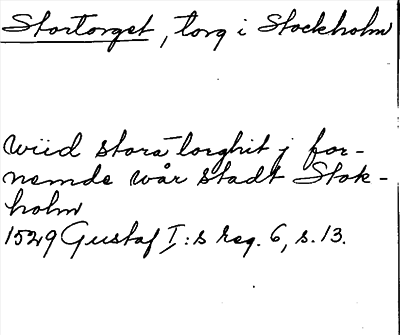 Stortorget, torg i Stockholm
wiid stora torghit j for-
nemde wår stadt Stok-
holm
1529 Gustaf I:s reg. 6, s. 13.